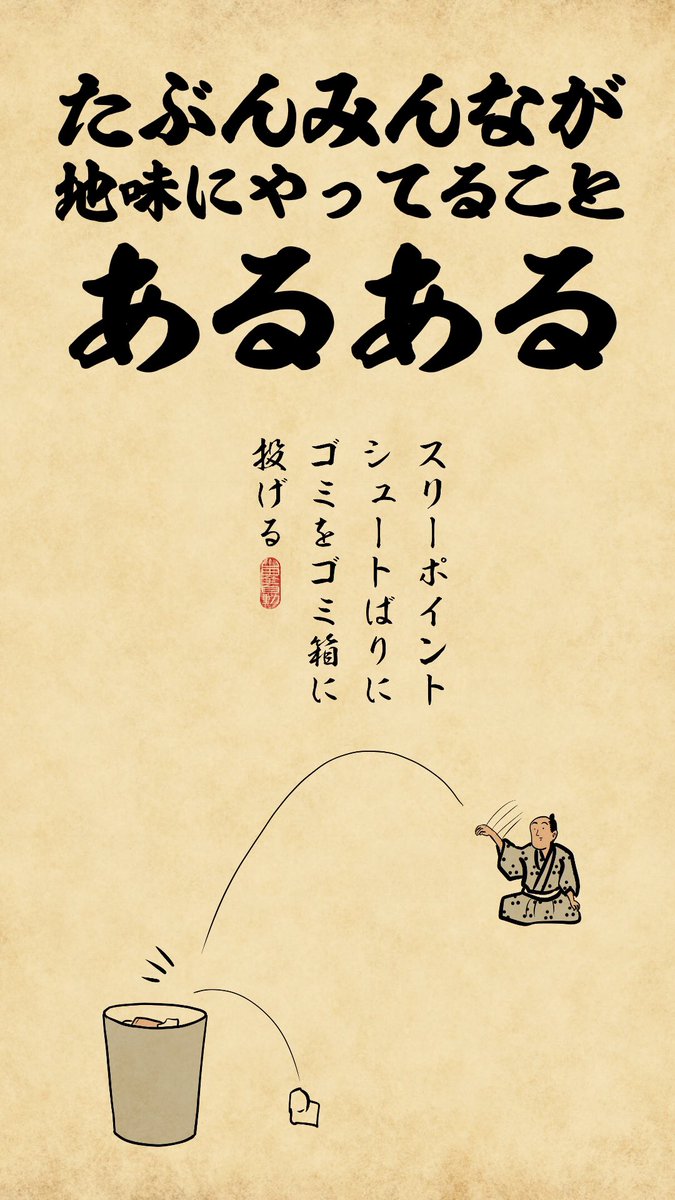 たぶんみんなが
地味にやってること
あるある
スリーポイント
シュートばりに
ゴミをゴミ箱に
投げる